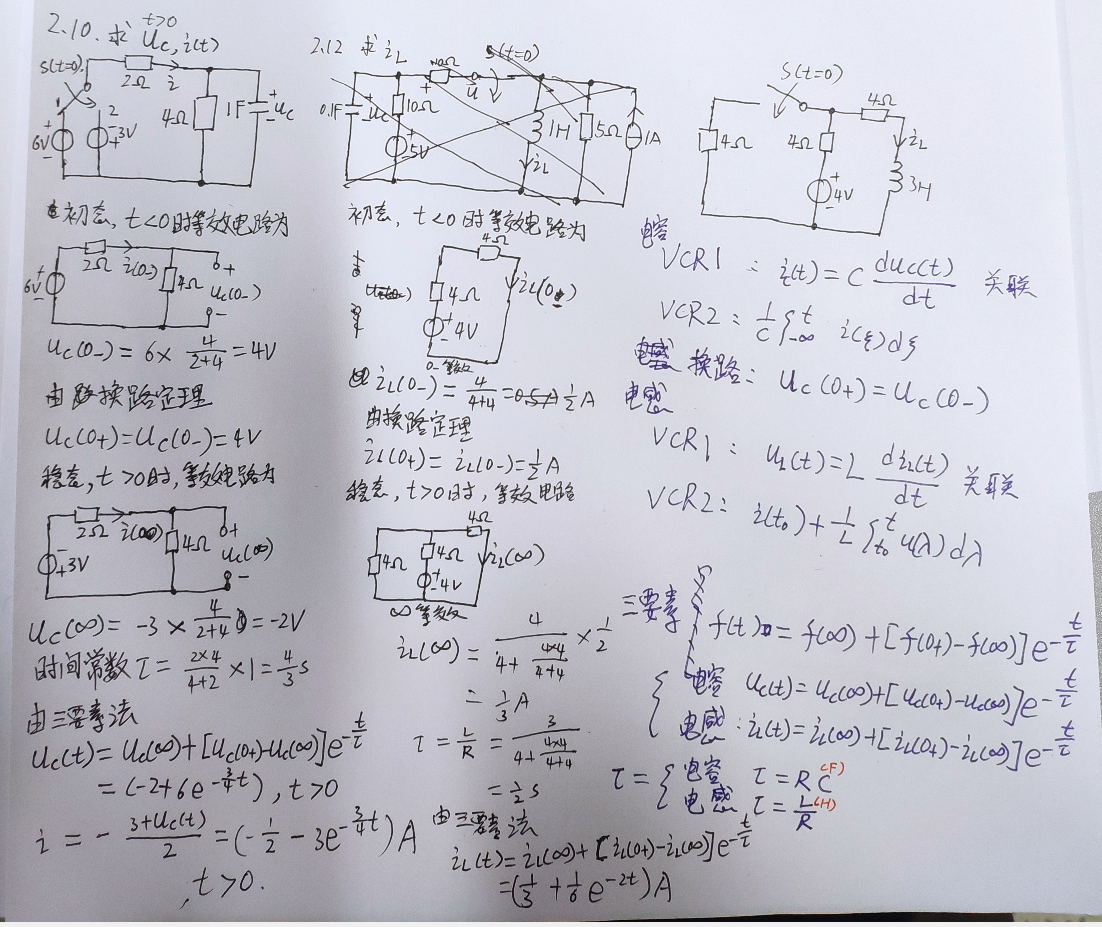 2.10. 求 t>0 Uc, i(t)
S(t=0).
2Ω
i
1
2
6V
+
3V
4Ω
1F
+
-
uc
初态, t<0时等效电路为
6V
2Ω
i(0-)
4Ω
+
uc(0-)
-
uc(0-) = 6× 4/(2+4) = 4V
由换路定理
uc(0+)=uc(0-)=4V
稳态, t>0时, 等效电路为
2Ω
i(∞)
3V
4Ω
+
uc(∞)
-
uc(∞) = -3 × 4/(2+4) = -2V
时间常数 τ = (2×4)/(4+2) ×1 = 4/3 s
由三要素法
uc(t) = uc(∞)+[uc(0+)-uc(∞)]e^(-t/τ)
= (-2+6e^(-3/4 t)), t>0
i = - (3+uc(t))/2 = (-1/2 - 3e^(-3/4 t)) A
, t>0.
2.12 求 iL
S(t=0)
0.1F
uc
10Ω
5V
u
1H
iL
5Ω
1A
初态, t<0时等效电路为
4Ω
4Ω
4V
iL(0-)
0-等效
iL(0-) = 4/(4+4) = 0.5A 1/2 A
由换路定理
iL(0+) = iL(0-) = 1/2 A
稳态, t>0时, 等效电路
4Ω
4Ω
4Ω
4V
iL(∞)
∞等效
iL(∞) = 4/(4 + (4×4)/(4+4)) × 1/2
= 1/3 A
τ = L/R = 3/(4 + (4×4)/(4+4))
= 1/2 s
由三要素法
iL(t) = iL(∞)+[iL(0+)-iL(∞)]e^(-t/τ)
=(1/3 + 1/6 e^(-2t)) A
S(t=0)
4Ω
4Ω
4Ω
4V
iL
3H
电容
VCR1 : i(t) = C duc(t)/dt 关联
VCR2 : 1/C ∫_-∞^t i(ξ)dξ
换路: uc(0+) = uc(0-)
电感
VCR1 : uL(t) = L diL(t)/dt 关联
VCR2 : i(t0) + 1/L ∫_t0^t u(λ)dλ
三要素 f(t) = f(∞) + [f(0+)-f(∞)]e^(-t/τ)
电容 uc(t) = uc(∞)+[uc(0+)-uc(∞)]e^(-t/τ)
电感: iL(t) = iL(∞)+[iL(0+)-iL(∞)]e^(-t/τ)
τ = { 电容 τ = RC (F)
电感 τ = L/R (H)